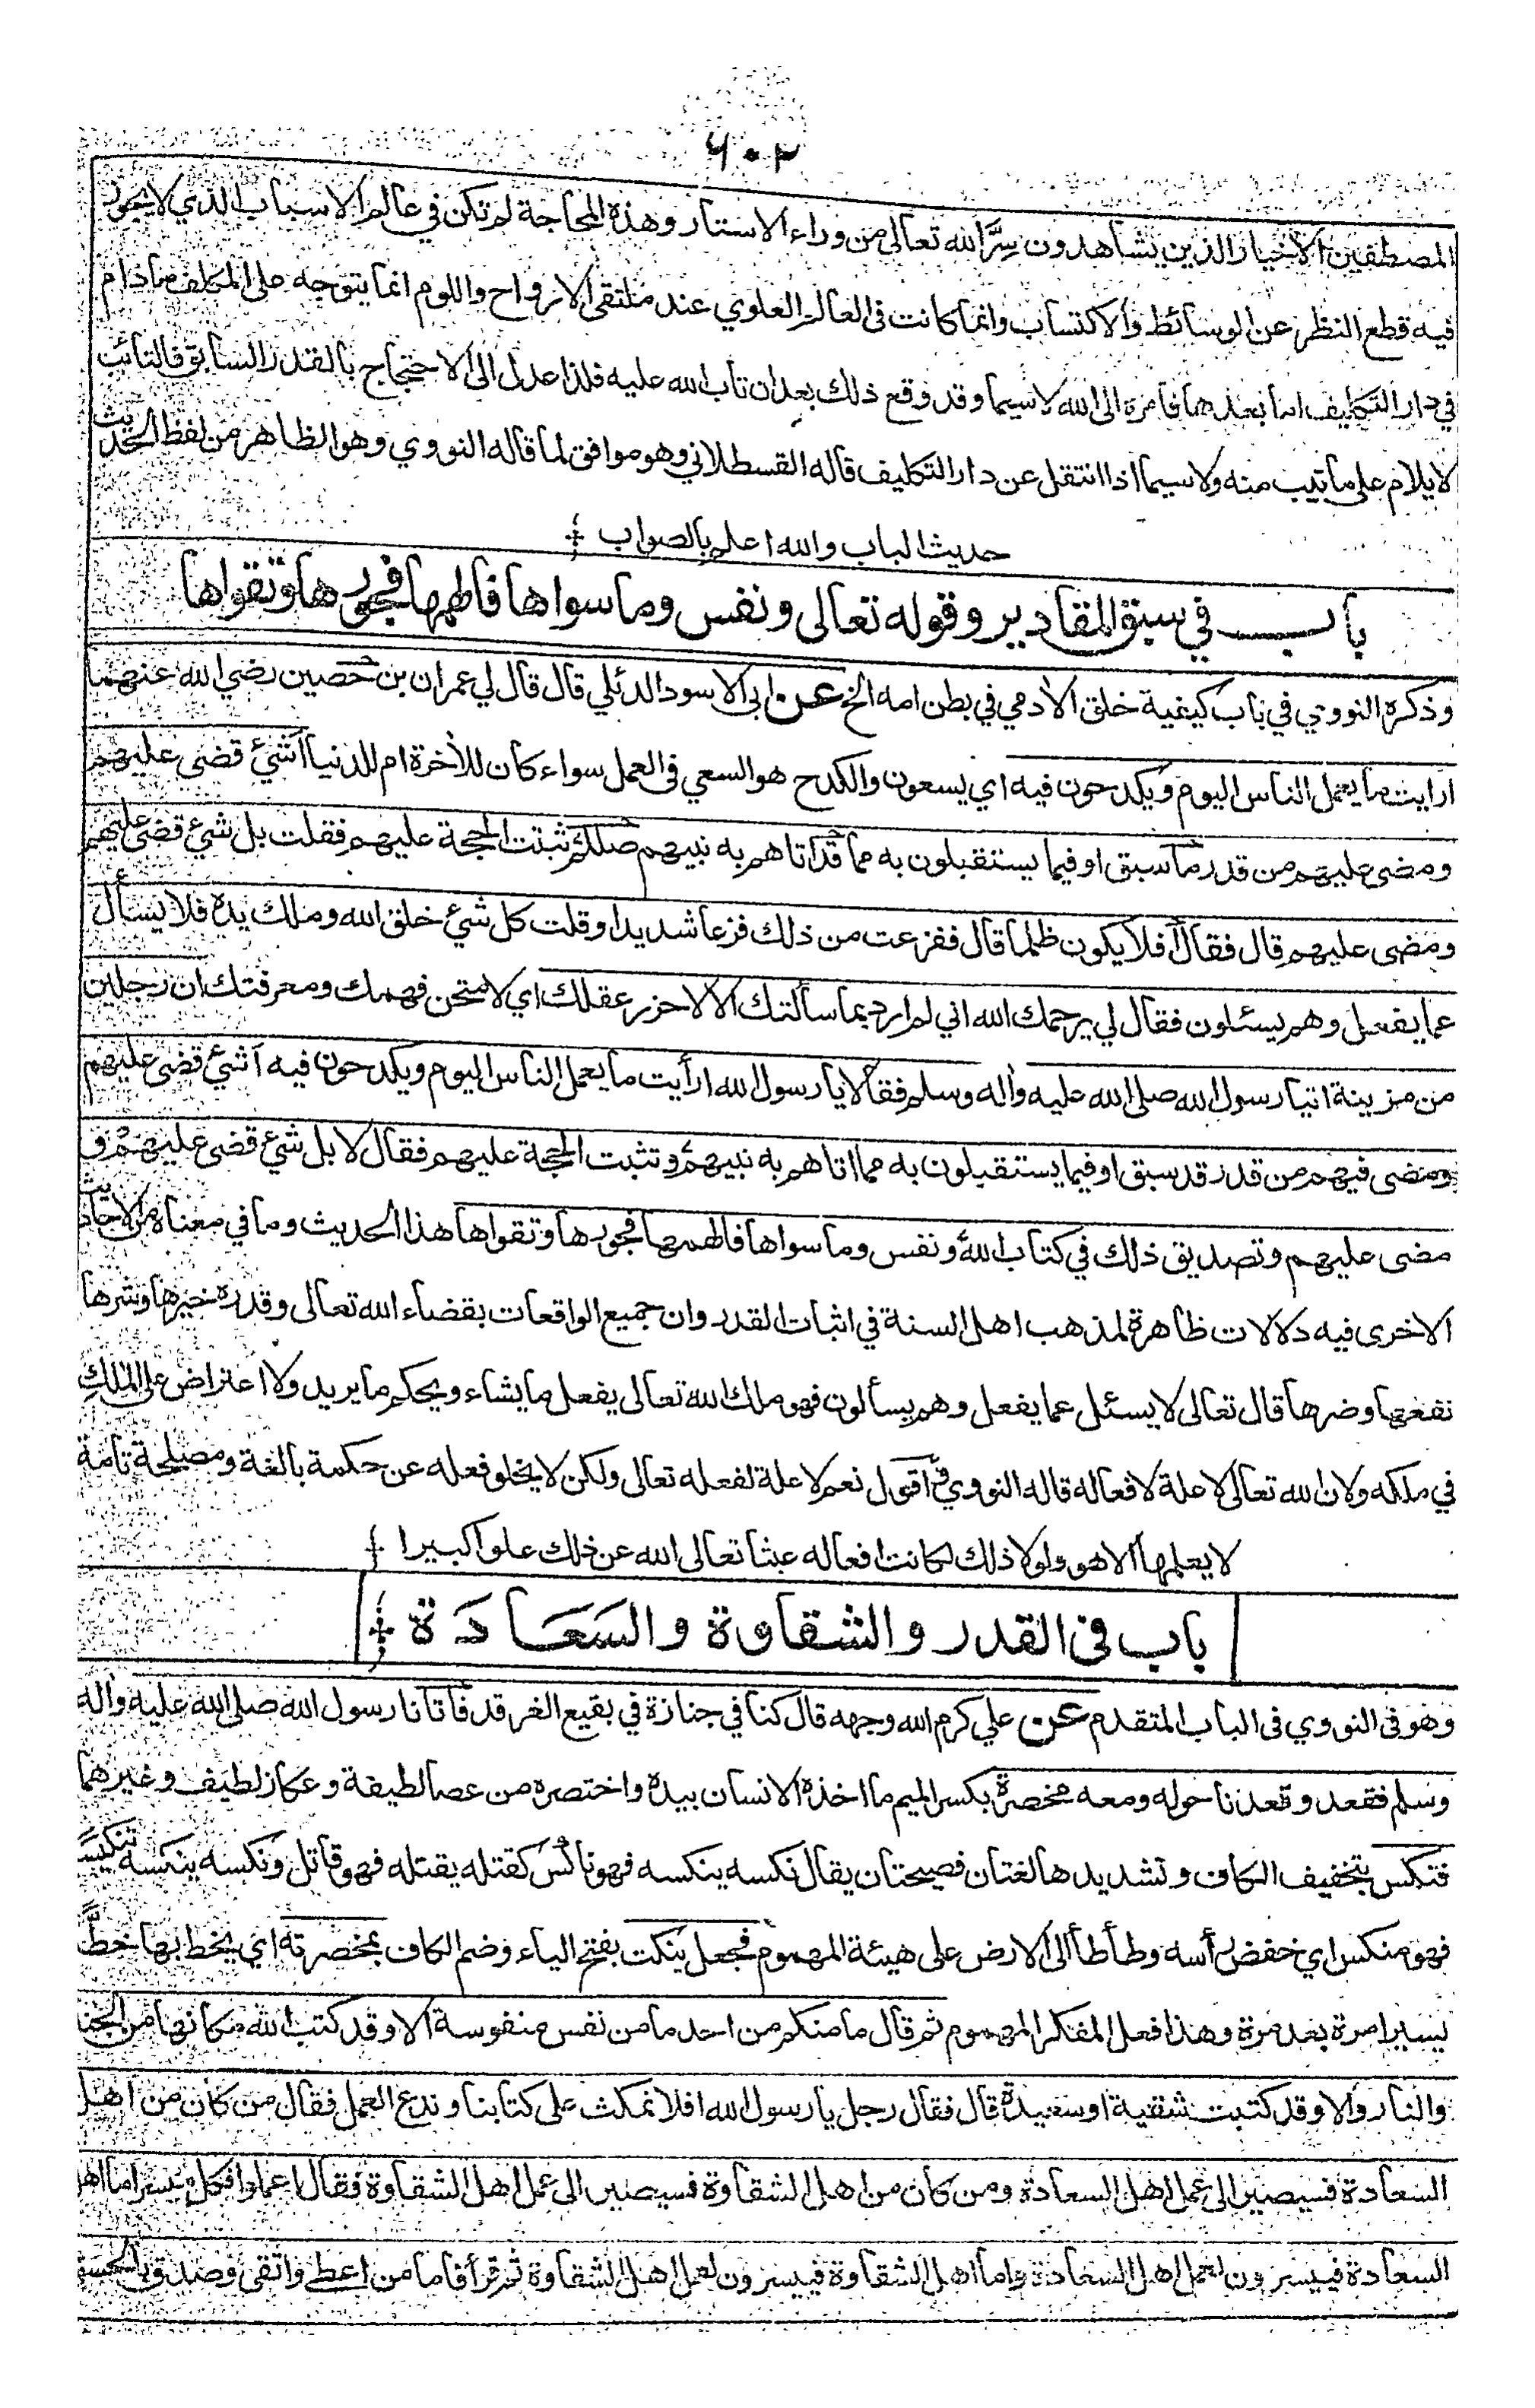 ٦٠٢
المصطفين الاخيار الذين يشاهدون سِرَّ الله تعالى من وراء الاستار وهذه المحاجة لم تكن في عالم الاسباب الذي لا يجوز
فيه قطع النظر عن الوسائط والاكتساب وانما كانت في العالم العلوي عند ملتقى الارواح واللوم انما يتوجه على المكلف مادام
في دار التكليف اما بعدها فامره الى الله لا سيما وقد وقع ذلك بعد ان تاب الله عليه فلذا عدل الى الاحتجاج بالقدر السابق فالتائب
لا يلام على ما تيب منه ولا سيما اذا انتقل عن دار التكليف قاله القسطلاني وهو موافق لما قاله النووي وهو الظاهر من لفظ الحديث
حديث الباب والله اعلم بالصواب
باب في سبق المقادير وقوله تعالى ونفس وما سواها فالهمها فجورها وتقواها
وذكره النووي في باب كيفية خلق الآدمي في بطن امه الخ عن ابى الاسود الدئلي قال قال لي عمران بن حصين رضي الله عنهما
ارايت ما يعمل الناس اليوم ويكدحون فيه اي يسعون والكدح هو السعي فى العمل سواء كان للآخرة ام للدنيا أشيء قضى عليهم
ومضى عليهم من قدر ما سبق او فيما يستقبلون به مما قد اتاهم به نبيهم صللم ثبتت الحجة عليهم فقلت بل شيء قضى عليهم
ومضى عليهم قال فقال أفلا يكون ظلما قال ففزعت من ذلك فزعا شديدا وقلت كل شيء خلق الله وملك يده فلا يسأل
عما يفعل وهم يسئلون فقال لي يرحمك الله اني لم ارد بما سألتك الا لاحزر عقلك اي لامتحن فهمك ومعرفتك ان رجلين
من مزينة اتيا رسول الله صلى الله عليه وآله وسلم فقالا يا رسول الله ارأيت ما يعمل الناس اليوم ويكدحون فيه أشيء قضى عليهم
ومضى فيهم من قدر قد سبق او فيما يستقبلون به مما اتاهم به نبيهم وتثبت الحجة عليهم فقال لا بل شيء قضى عليهم و
مضى عليهم وتصديق ذلك في كتاب الله ونفس وما سواها فالهمها فجورها وتقواها هذا الحديث وما في معناه من الاحاديث
الاخرى فيه دلالات ظاهرة لمذهب اهل السنة في اثبات القدر وان جميع الواقعات بقضاء الله تعالى وقدره خيرها وشرها
نفعها وضرها قال تعالى لا يسئل عما يفعل وهم يسألون فهو ملك الله تعالى يفعل ما يشاء ويحكم ما يريد ولا اعتراض على المالك
في ملكه ولان الله تعالى لا علة لافعاله قاله النووي اقول نعم لا علة لفعله تعالى ولكن لا يخلو فعله عن حكمة بالغة ومصلحة تامة
لا يعلمها الا هو ولولا ذلك لكانت افعاله عبثا تعالى الله عن ذلك علوا كبيرا
باب فى القدر والشقاوة والسعادة
وهو فى النووي فى الباب المتقدم عن علي كرم الله وجهه قال كنا في جنازة في بقيع الغرقد فاتانا رسول الله صلى الله عليه وآله
وسلم فقعد وقعدنا حوله ومعه مخصرة بكسر الميم ما اخذه الانسان بيده واختصره من عصا لطيفة وعكاز لطيف وغيرهما
فنكس بتخفيف الكاف وتشديدها لغتان فصيحتان يقال نكسه ينكسه فهو ناكس كقتله يقتله فهو قاتل ونكسه ينكسه تنكيسا
فهو منكس اي خفض رأسه وطأطأ الى الارض على هيئة المهموم فجعل ينكت بفتح الياء وضم الكاف بمخصرته اي يخط بها خطًّا
يسيرا مرة بعد مرة وهذا فعل المفكر المهموم ثم قال ما منكم من احد ما من نفس منفوسة الا وقد كتب الله مكانها من الجنة
والنار والا وقد كتبت شقية او سعيدة قال فقال رجل يا رسول الله افلا نمكث على كتابنا وندع العمل فقال من كان من اهل
السعادة فسيصير الى عمل اهل السعادة ومن كان من اهل الشقاوة فسيصير الى عمل اهل الشقاوة فقال اعملوا فكل ميسر اما اهل
السعادة فييسرون لعمل اهل السعادة واما اهل الشقاوة فييسرون لعمل اهل الشقاوة ثم قرأ فاما من اعطى واتقى وصدق بالحسنى